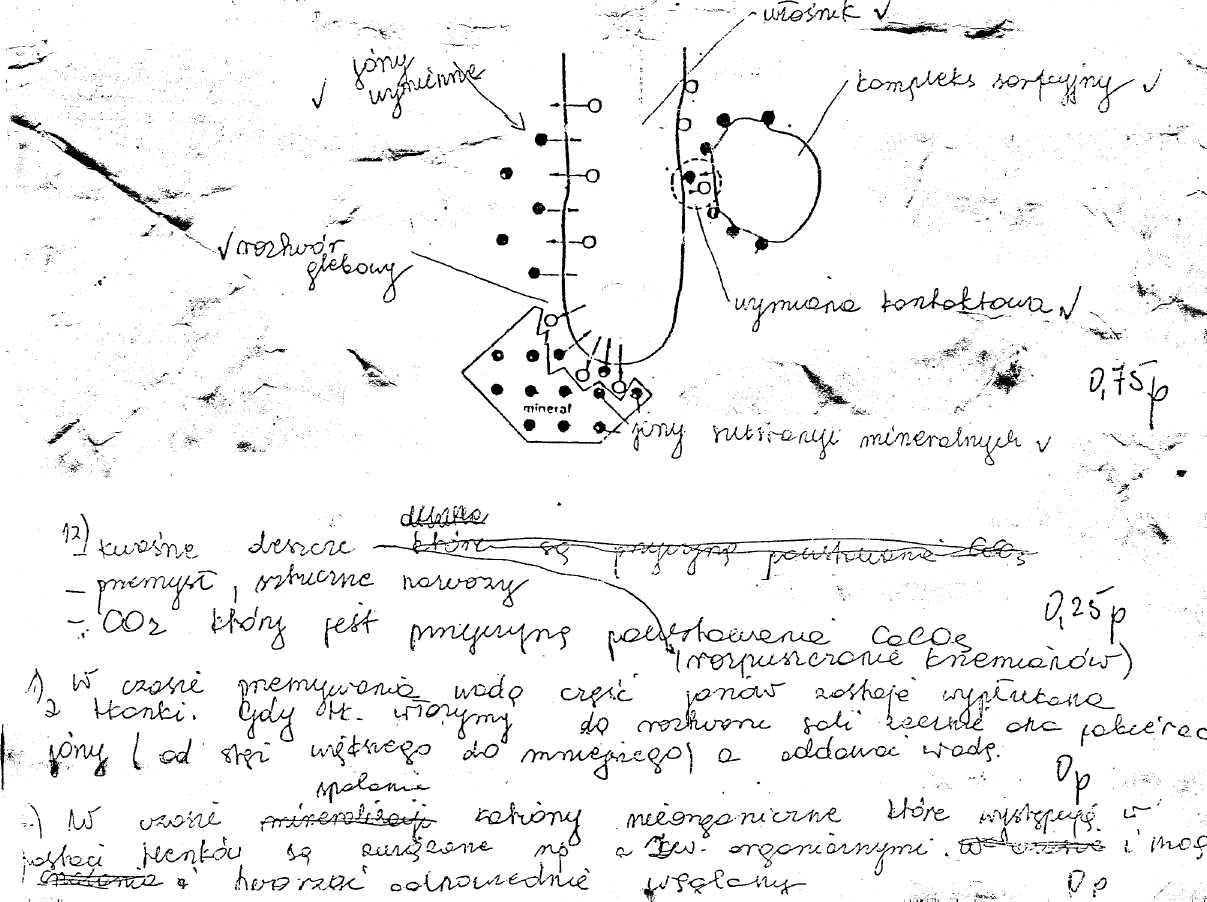 włośnik √
jóny
wymienne
√
kompleks sorpcyjny √
√ roztwór
glebowy
wymiana kontaktowa √
0,75 p
mineral
jony substancji mineralnych √
12)
kwaśne deszcze które są przyczyną powstawanie CaCO3
– przemysł, sztuczne nawozy
– CO2 który jest przyczyną powstawania CaCO3
0,25 p
(rozpuszczanie krzemianów)
1) W czasie przemywania wodą część jonów zostaje wypłukana
z tkanki. Gdy tk. włożymy do roztworu soli zacznie ona pobierać
jóny (od stęż większego do mniejszego) a oddawać wodę.
0 p
spalania
W czasie mineralizacji kationy nieorganiczne które występują w
postaci tlenków są związane np z zw. organicznymi. i mogą
tworzyć odpowiednie węglany
0 p